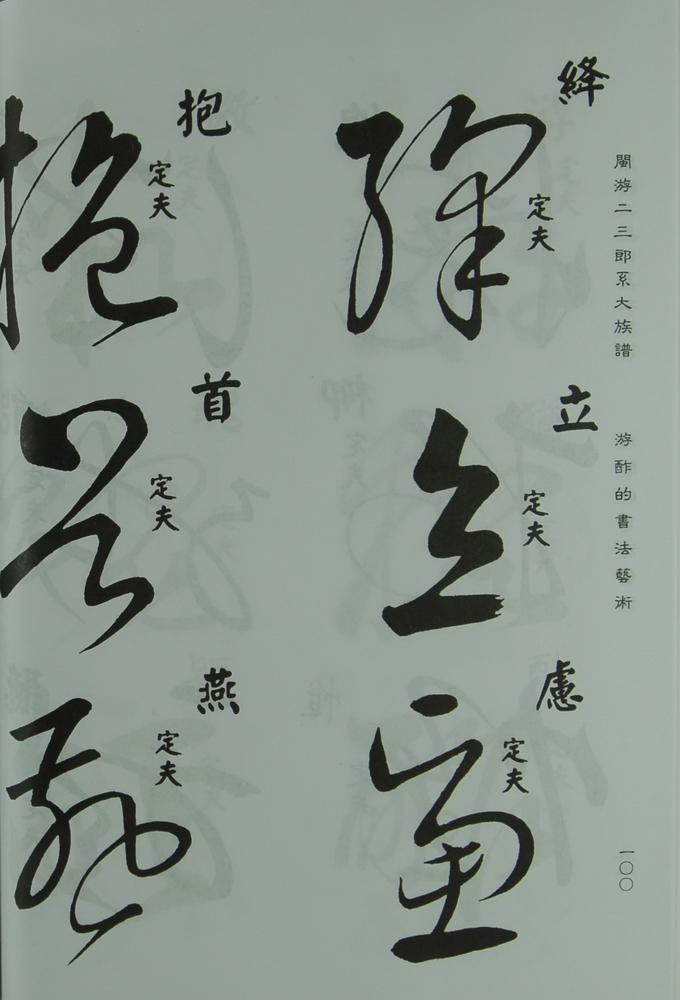 閩游二三郎系大族譜 游酢的書法藝術 一〇〇
絳 定夫
立 定夫
慮 定夫
抱 定夫
首 定夫
燕 定夫